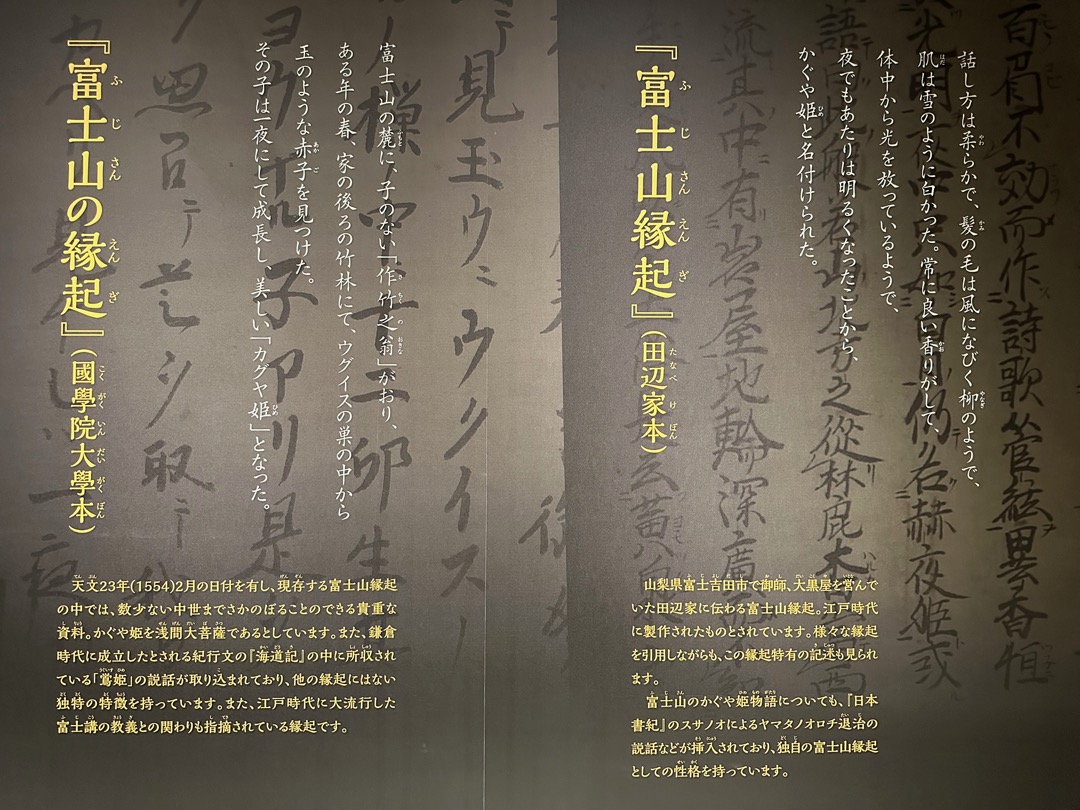 話し方は柔らかで、髪の毛は風になびく柳のようで、
肌は雪のように白かった。常に良い香りがして、
体中から光を放っているようで、
夜でもあたりは明るくなったことから、
かぐや姫と名付けられた。
『富士山縁起』(田辺家本)
山梨県富士吉田市で御師、大黒屋を営んで
いた田辺家に伝わる富士山縁起。江戸時代
に製作されたものとされています。様々な縁起
を引用しながらも、この縁起特有の記述も見られ
ます。
富士山のかぐや姫物語についても、『日本
書紀』のスサノオによるヤマタノオロチ退治の
説話などが挿入されており、独自の富士山縁起
としての性格を持っています。
富士山の麓に、子のない「作竹之翁」がおり、
ある年の春、家の後ろの竹林にて、ウグイスの巣の中から
玉のような赤子を見つけた。
その子は一夜にして成長し、美しい「カグヤ姫」となった。
『富士山の縁起』(國學院大學本)
天文23年(1554)2月の日付を有し、現存する富士山縁起
の中では、数少ない中世までさかのぼることのできる貴重な
資料。かぐや姫を浅間大菩薩であるとしています。また、鎌倉
時代に成立したとされる紀行文の『海道記』の中に所収され
ている「鶯姫」の説話が取り込まれており、他の縁起にはない
独特の特徴を持っています。また、江戸時代に大流行した
富士講の教義との関わりも指摘されている縁起です。